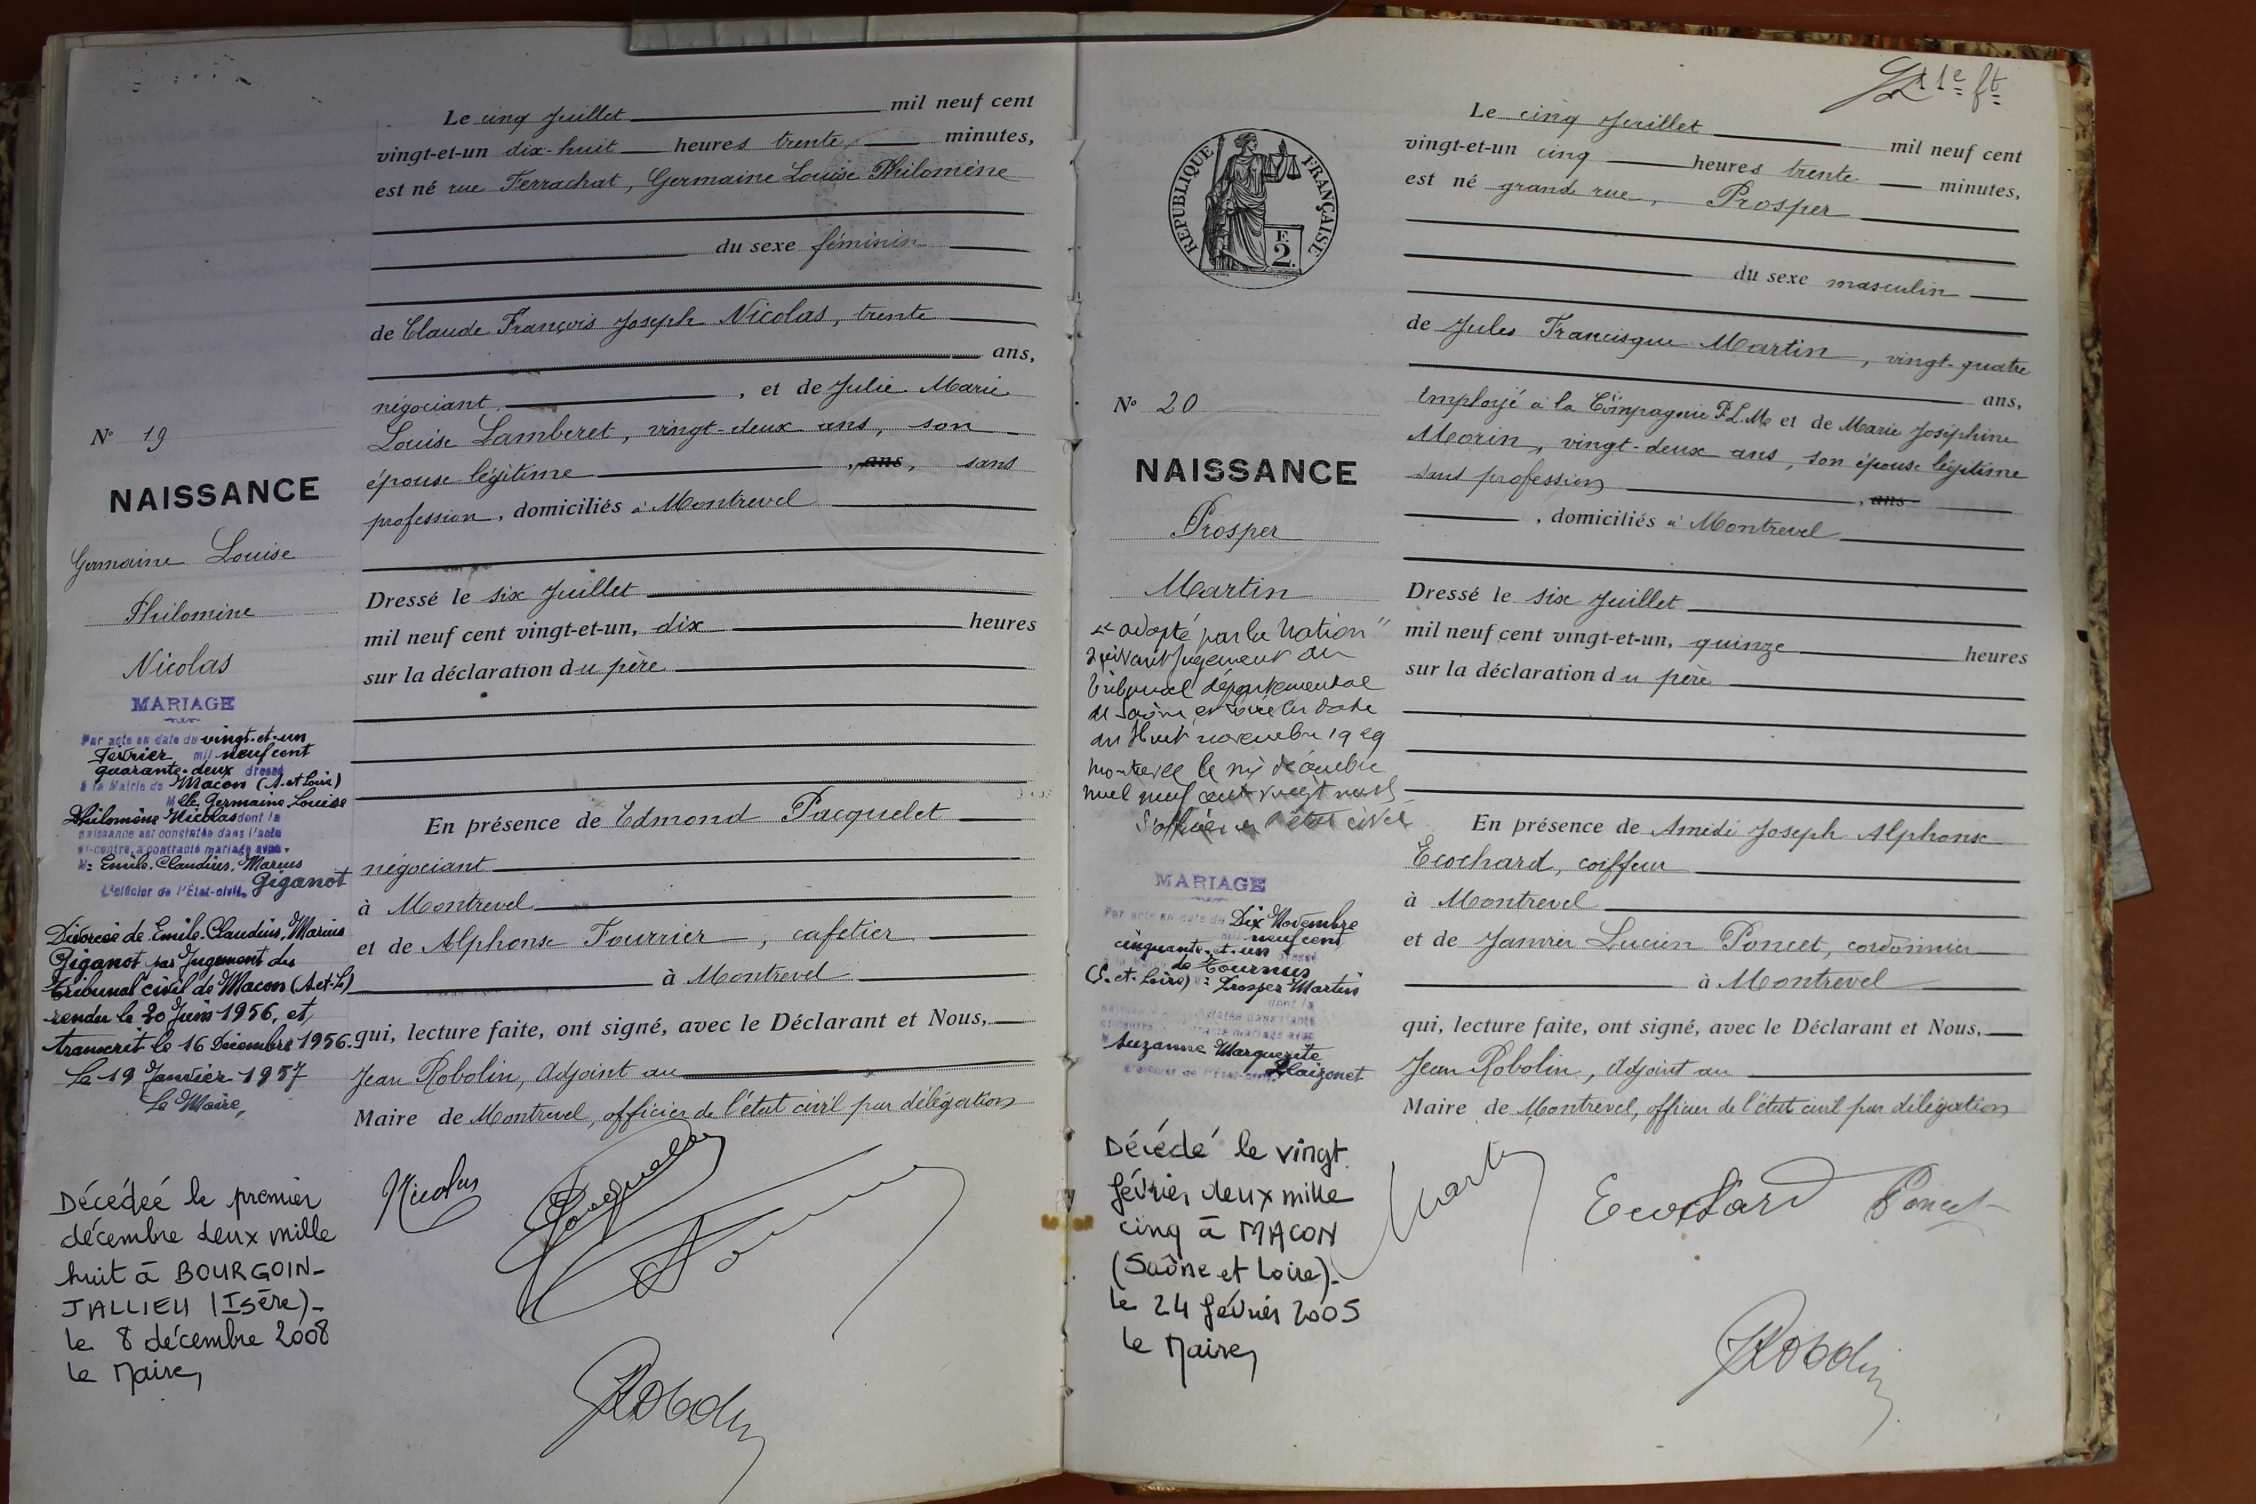 Le cinq Juillet mil neuf cent
vingt-et-un dix-huit heures trente minutes,
est né rue Ferrachat, Germaine Louise Philomène
du sexe féminin
de Claude François Joseph Nicolas, trente
ans,
négociant, et de Julie Marie
Louise Lamberet, vingt-deux ans, son
épouse légitime, ans, sans
profession, domiciliés à Montrevel
Dressé le six Juillet
mil neuf cent vingt-et-un, dix heures
sur la déclaration du père
En présence de Edmond Pacquelet
négociant
à Montrevel
et de Alphonse Fourrier, cafetier
à Montrevel
qui, lecture faite, ont signé, avec le Déclarant et Nous,
Jean Robolin, Adjoint au
Maire de Montrevel, officier de l'état civil par délégation
Nicolas
Robolin
N° 19
NAISSANCE
Germaine Louise
Philomène
Nicolas
MARIAGE
Par acte en date du vingt-et-un
Février mil neuf cent
quarante-deux dressé
à la Mairie de Macon (S.et Loire)
Mlle Germaine Louise
Philomène Nicolas dont la
naissance est constatée dans l'acte
ci-contre, a contracté mariage avec
M: Emile. Claudius. Marius
Giganot
L'officier de l'État-civil,
Divorcée de Emile. Claudius, Marius
Giganot par Jugement du
tribunal civil de Macon (S.et-L)
rendu le 30 Juin 1956, et
transcrit le 16 Décembre 1956.
Le 19 Janvier 1957
Le Maire,
Décédée le premier
décembre deux mille
huit à BOURGOIN-
JALLIEU (Isère)-
le 8 décembre 2008
le Maire,
11e ft
RÉPUBLIQUE FRANÇAISE
F.
2.
Le cinq Juillet mil neuf cent
vingt-et-un cinq heures trente minutes,
est né grand rue, Prosper
du sexe masculin
de Jules Francisque Martin, vingt-quatre
ans,
employé à la Compagnie P.L.M. et de Marie Joséphine
Morin, vingt-deux ans, son épouse légitime
sans profession, ans
, domiciliés à Montrevel
Dressé le six Juillet
mil neuf cent vingt-et-un, quinze heures
sur la déclaration du père
En présence de Amédé Joseph Alphonse
Ecochard, coiffeur
à Montrevel
et de Janvier Lucien Poncet, cordonnier
à Montrevel
qui, lecture faite, ont signé, avec le Déclarant et Nous,
Jean Robolin, Adjoint au
Maire de Montrevel, officier de l'état civil par délégation
Martin
Ecochard
Poncet
Robolin
N° 20
NAISSANCE
Prosper
Martin
"adopté par la Nation"
suivant jugement du
tribunal départemental
de Saône et Loire en date
du Huit novembre 1929
Montrevel le dix décembre
mil neuf cent vingt neuf
l'officier de l'état civil
MARIAGE
Par acte en date du Dix Novembre
mil neuf cent
cinquante-et-un dressé
de Tournus
(S.-et-Loire) M: Prosper Martin
dont la
Suzanne Marguerite
Plaizonet
L'officier de l'État-civil,
Décédé le vingt
février deux mille
cinq à MACON
(Saône et Loire)-
le 24 février 2005
le Maire,